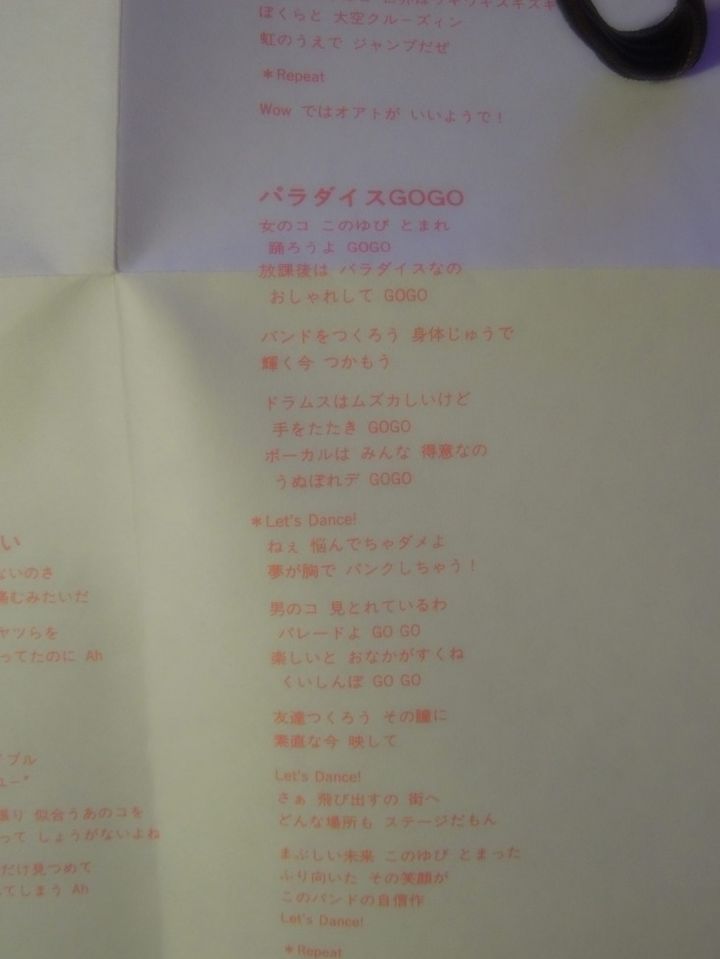 ぼくらと 大空クルーズィン
虹のうえで ジャンプだぜ
＊Repeat
Wow ではオアトが いいようで！
パラダイスGOGO
女のコ このゆび とまれ
踊ろうよ GOGO
放課後は パラダイスなの
おしゃれして GOGO
バンドをつくろう 身体じゅうで
輝く今 つかもう
ドラムスはムズカしいけど
手をたたき GOGO
ボーカルは みんな 得意なの
うぬぼれデ GOGO
＊Let's Dance!
ねぇ 悩んでちゃダメよ
夢が胸で パンクしちゃう！
男のコ 見とれているわ
パレードよ GO GO
楽しいと おなかがすくね
くいしんぼ GO GO
友達つくろう その瞳に
素直な今 映して
Let's Dance!
さぁ 飛び出すの 街へ
どんな場所も ステージだもん
まぶしい未来 このゆび とまった
ふり向いた その笑顔が
このバンドの自信作
Let's Dance!
＊Repeat
い
ないのさ
痛むみたいだ
ヤツらを
ってたのに Ah
イブル
ュー"
張り 似合うあのコを
って しょうがないよね
だけ見つめて
てしまう Ah